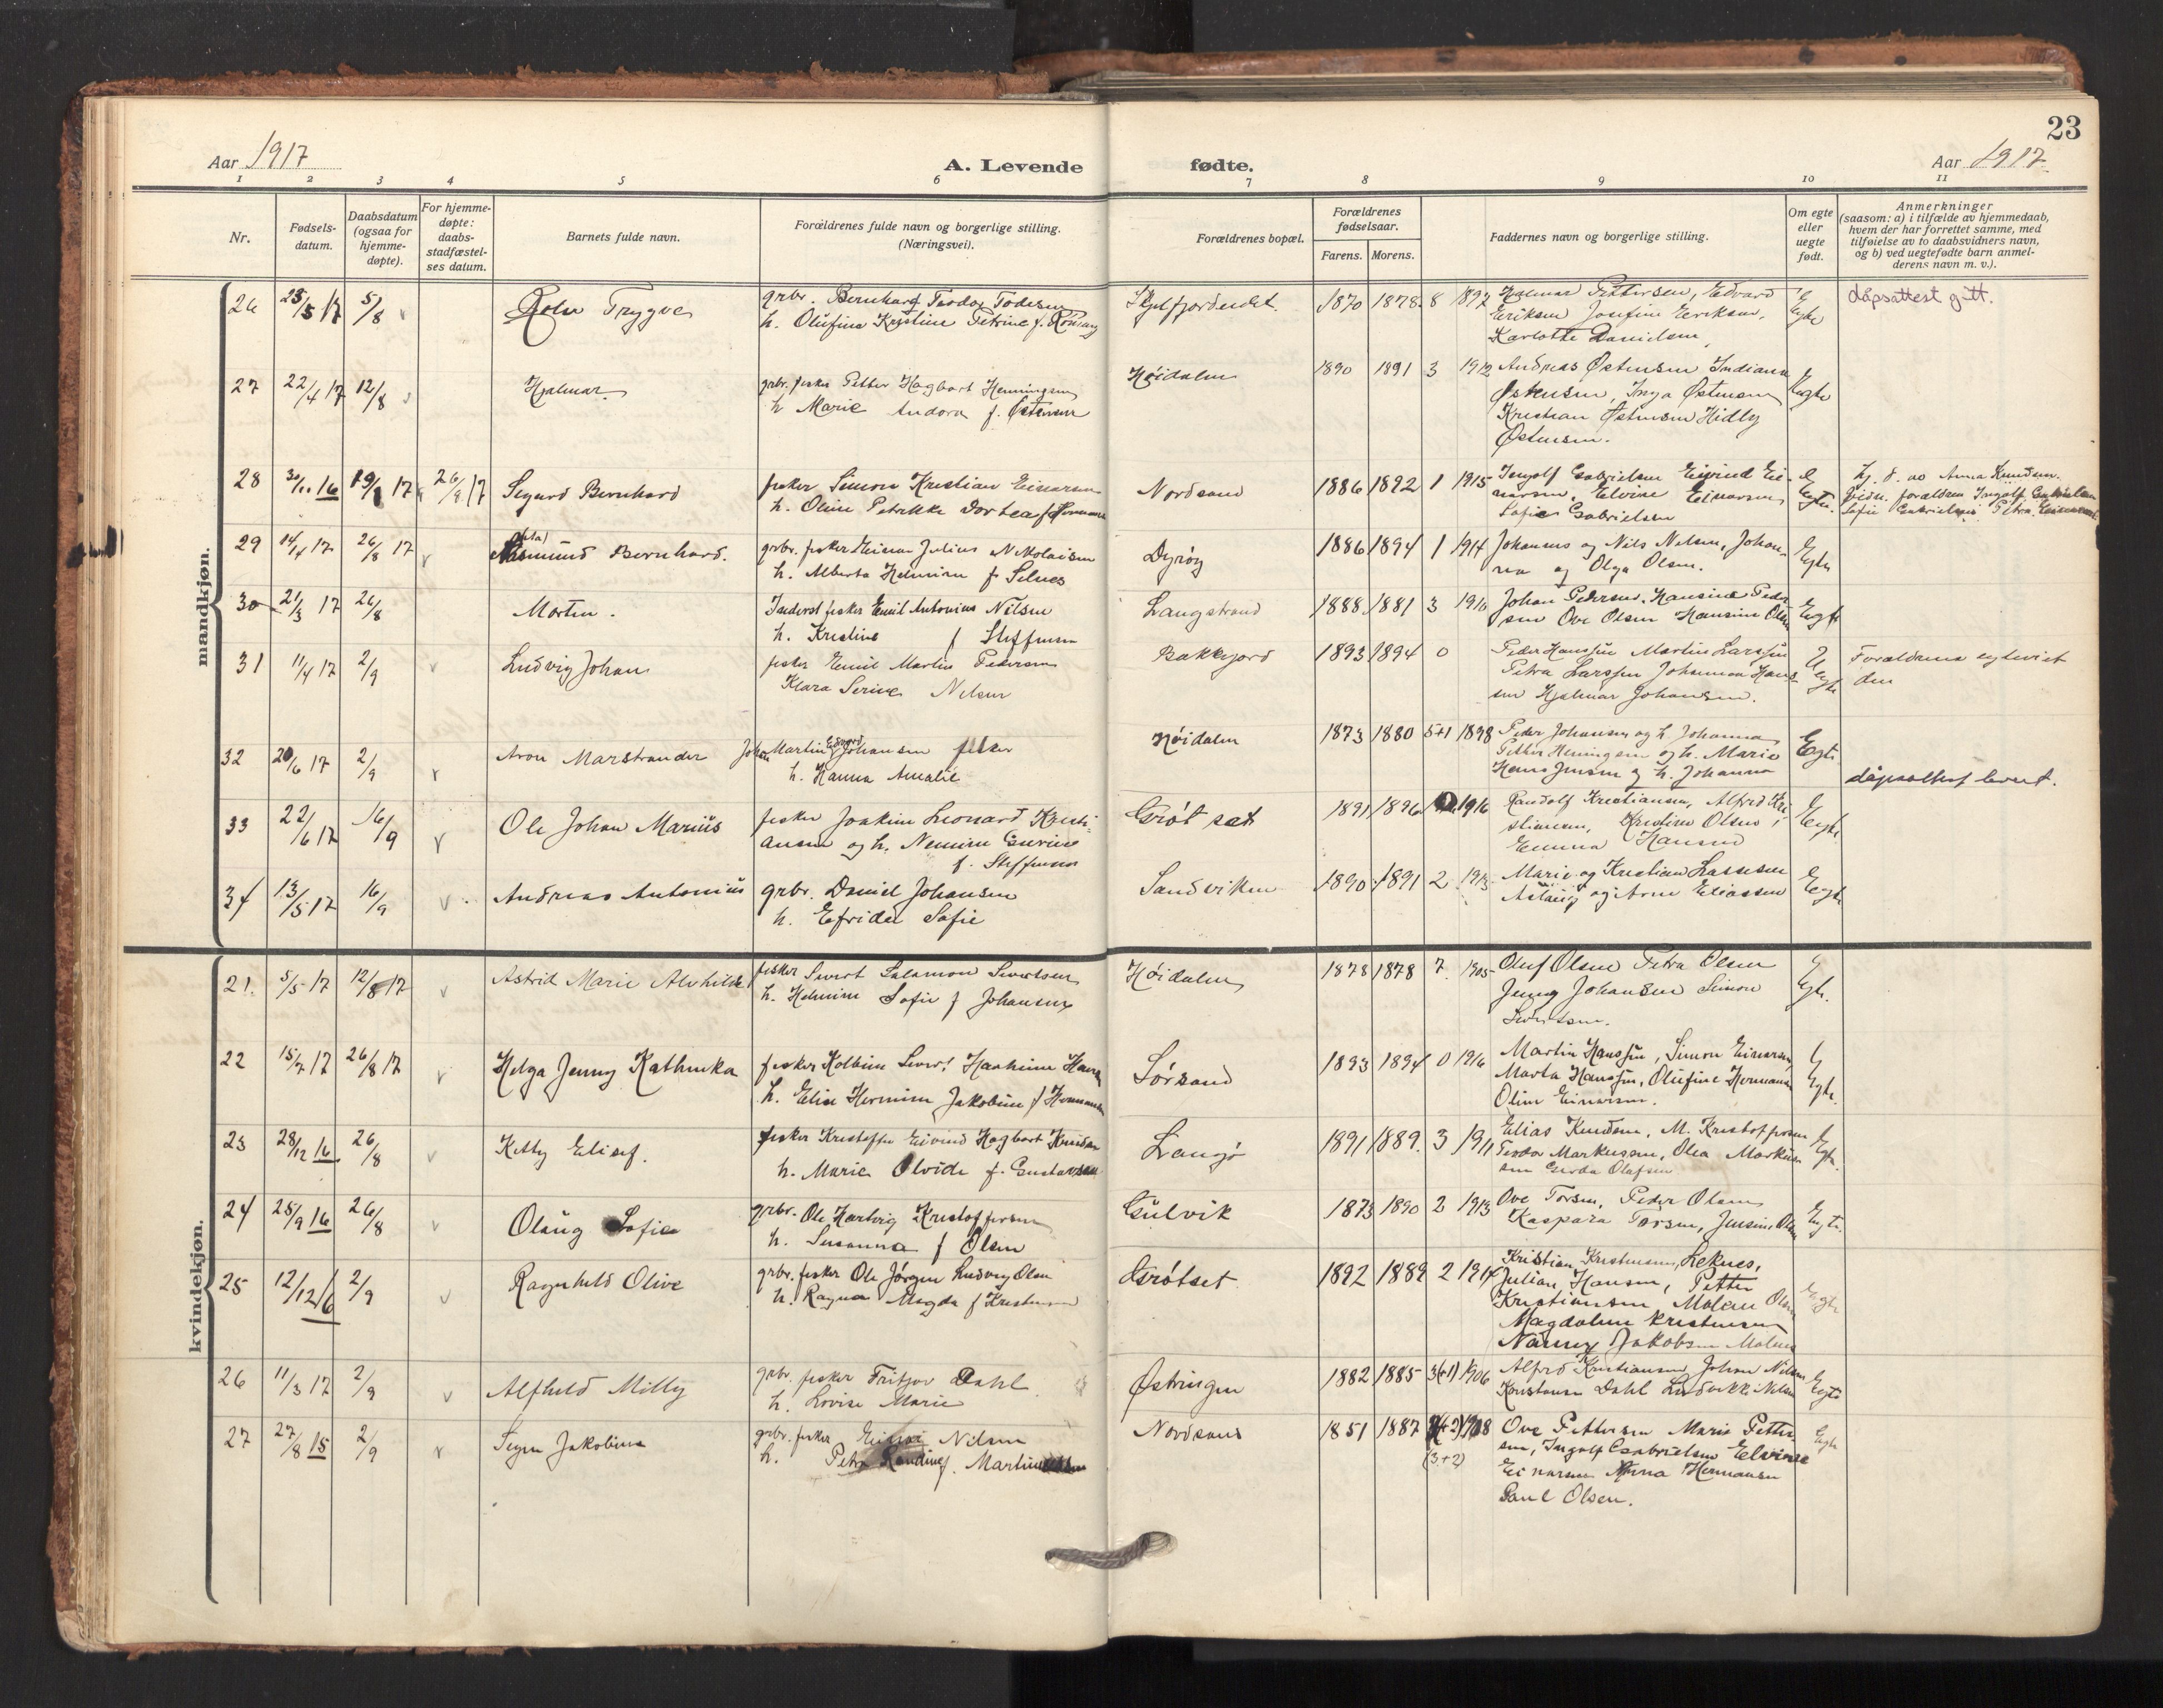 23
Aar 1917
A. Levende fødte.
Aar 1917
1 2 3 4 5 6 7 8 9 10 11
Nr.
Fødsels-
datum.
Daabsdatum
(ogsaa for
hjemme-
døpte).
For hjemme-
døpte:
daabs-
stadfæstel-
ses datum.
Barnets fulde navn.
Forældrenes fulde navn og borgerlige stilling.
(Næringsvei).
Forældrenes bopæl.
Forældrenes
fødselsaar.
Farens. Morens.
Faddernes navn og borgerlige stilling.
Om egte
eller
uegte
født.
Anmerkninger
(saasom: a) i tilfælde av hjemmedaab,
hvem der har forrettet samme, med
tilføielse av to daabsvidners navn,
og b) ved uegtefødte barn anmel-
derens navn m. v.).
mandkjøn.
26 /5 17 5/8 Trygve grbr. Bernhard Teodor 1870 1878 8 1892 Hjalmar Pettersen, Edvard Egte dåpsattest gitt.
h. Olufine Kristine Petrine f.
Eriksen Josefine Eriksen,
Karlotte Danielsen
27 22/4 17 12/8 Hjalmar grbr. fisker Petter Hagbart Henningsen Høidalen 1890 1891 3 1912 Andreas Østensen Indiana Egte
h. Marie Andora f. Østensen
Østensen, Inga Østensen
Kristian Østensen Hidly
Østensen.
28 16 17 26/8 17 Sigurd Bernhard fisker Simon Kristian Einarsen Nordsand 1886 1892 1 1915 Ingolf Gabrielsen Eivind Ei- Egte. Hj. d. av Anna Knudsen.
h. Oline Petrikke Dortea f. Hermansen
narsen, Elvine Einarsen
Sofie Gabrielsen
forældren Ingolf Gabrielsen
Sofie Gabrielsen Petra Einarsen
29 14/4 17 26/8 17 Bernhard. grbr. fisker Einar Julius Nikolaisen Dyrøy 1886 1894 1 1914 Johannes og Nils Nilsen, Johan- Egte
h. Alberta Helmine f. Selnes
na og Olga Olsen.
30 21/3 17 26/8 Morten. Inderst fisker Emil Antonius Nilsen Langstrand 1888 1881 3 1916 Johan Pedersen, Hansine Peder- Egte
h. Kristine f Steffensen
sen Ove Olsen Hansine Olsen
31 11/4 17 2/9 Ludvig Johan fisker Emil Martin Pedersen Bakkejord 1893 1894 0 Peder Hanssen Martin Larssen Uegte Forældrene egteviet
Klara Serine Nilsen
Petra Larssen Johanna Hans-
sen Hjalmar Johansen.
den
32 20/6 17 2/9 Aron Marstrander Johan Martin Edvard Johansen fisker Høidalen 1873 1880 5+1 1898 Peder Johansen og h. Johanna Egte
h. Hanna Amalie
Petter Heningsen og h. Marie
Hans Jensen og h. Johanna
dåpsattest levert.
33 22/6 17 16/9 Ole Johan Marius fisker Joakim Leonard Kristi- Grøtset 1891 1896 1916 Randolf Kristiansen, Alfred Kri- Egte
ansen og h. Nemine Gurine
f. Steffensen
stiansen, Kristine Olsen,
Emma Hansen
34 13/5 17 16/9 Andreas Antonius grbr. Daniel Johansen Sandviken 1890 1891 2 1913 Marie og Kristian Lassesen Egte
h. Efrida Sofie
Aslaug og Arne Eliassen
kvindekjøn.
21. 5/5 17 12/8 17 Astrid Marie Alvhilde fisker Sivert Salamon Sivertsen Høidalen 1878 1878 7 1905 Oluf Olsen Petra Olsen Egte.
h. Helmine Sofie f Johansen
Jenny Johansen Simon
Sivertsen.
22 15/7 17 26/8 17 Helga Jenny Kathinka fisker Kolbein Sivert Sørsand 1893 1894 0 1916 Martin Hanssen, Simon Einarsen Egte.
h. Elise Hermine Jakobine f Hermansen
Marta Hanssen, Olufine Hermansen
Oline Einarsen.
23 28/12 16 26/8 Ketty Elisef. fisker Kristoffer Eivind Hagbart Knudsen Langø 1891 1889. 3 1911 Elias Knudsen, M. Kristoffersen Egte.
h. Marie Olvide f. Gustavsen
Teodor Markussen, Olea Markus-
sen Gerda Olafsen
24 25/9 16 26/8 Olaug Sofie grbr. Ole Hartvig Kristoffersen Gulvik 1873 1890 2 1913 Ove Torsen, Peder Olsen Egte.
h. Susanna f Olsen
Kaspara Torsen, Jensine Olsen
25 12/12 16 2/9 Ragnhild Olive grbr. fisker Ole Jørgen Ludvig Olsen Grøtset 1892 1889 2 1914 Kristian Kristensen, Leknes, Egte
h. Ragna Magda f Kristensen
Julian Hansen, Petter
Kristiansen Malene Olsen
Magdalene Kristensen
Nanny Jakobsen
26 11/3 17 2/9 Alfhild Milly grbr. fisker Fritjov Dahl Østringen 1882 1885 3(+1) 1906 Alfred Kristiansen, Johan Nilsen Egte
h. Lovise Marie
Konstanse Dahl Ludvikke Nilsen
27 27/8 15 2/9 Signe Jakobine grbr. fisker Einar Nilsen Nordsand 1851 1887 (+2) 1908 Ove Pettersen Marie Petter- Egte
h. Petra Randine f. Martin
(3+2)
sen, Ingolf Gabrielsen Elvine
Einarsen Anna Hermansen
Paul Olsen.